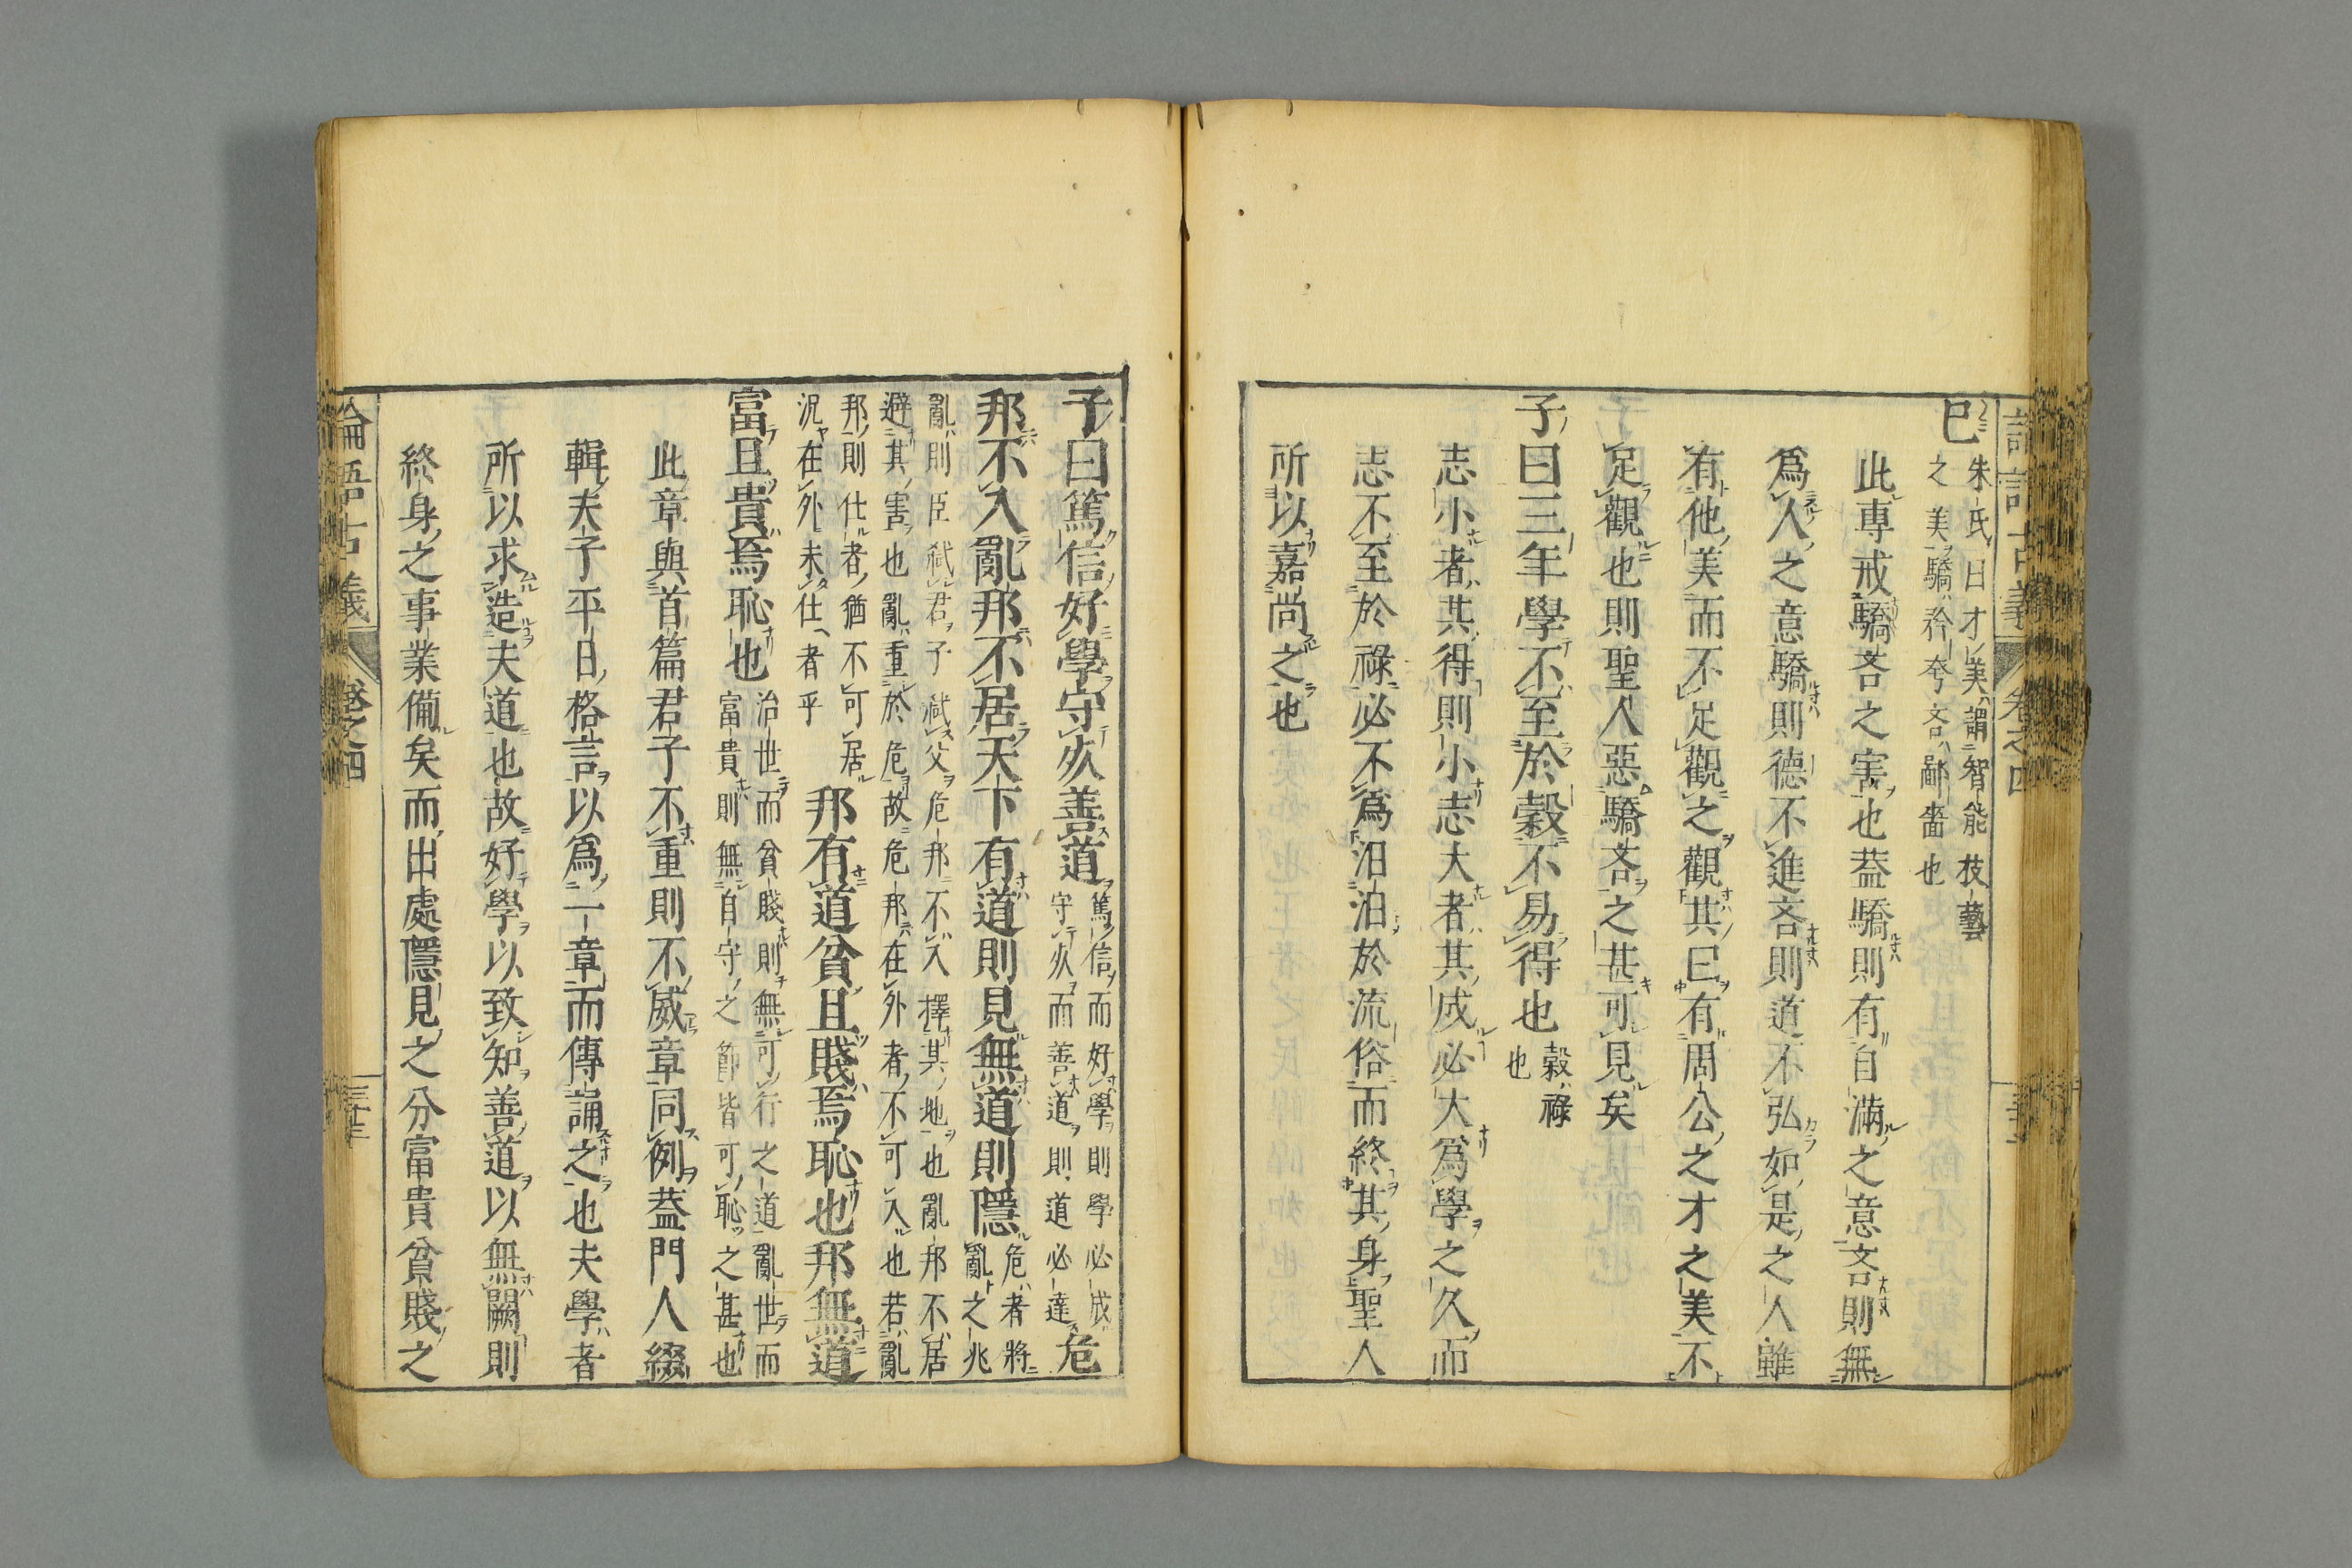 已 朱氏曰才美謂智能技藝
之美驕矜夸吝鄙嗇也
此專戒驕吝之害也蓋驕則有自滿之意吝則無
爲人之意驕則德不進吝則道不弘如是之人雖
有他美而不足觀之觀其曰有周公之才之美不
足觀也則聖人惡驕吝之甚可見矣
子曰三年學不至於穀不易得也 穀祿
也
志小者其得則小志大者其成必大爲學之久而
志不至於祿必不爲汨汨於流俗而終其身聖人
所以嘉尚之也
子曰篤信好學守死善道 篤信而好學則學必成
守死而善道則道必達 危
邦不入亂邦不居天下有道則見無道則隱 危者將
亂之兆
亂則臣弑君子弑父危邦不入擇其地也亂邦不居
避其害也亂重於危故危邦在外者不可入也若亂
邦則仕者猶不可居
況在外未仕者乎 邦有道貧且賤焉恥也邦無道
富且貴焉恥也 治世而貧賤則無可行之道亂世而
富貴則無自守之節皆可恥之甚也
此章與首篇君子不重則不威章同例蓋門人綴
輯夫子平日格言以爲一章而傳誦之也夫學者
所以求造夫道也故好學以致知善道以無闕則
終身之事業備矣而出處隱見之分富貴貧賤之
論語古義 卷之四 三十三